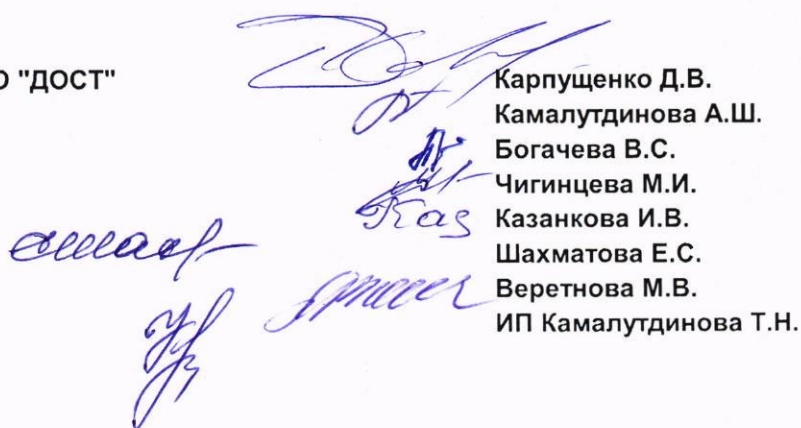 О "ДОСТ"
Карпущенко Д.В.
Камалутдинова А.Ш.
Богачева В.С.
Чигинцева М.И.
Каз Казанкова И.В.
Шахматова Е.С.
Веретнова М.В.
ИП Камалутдинова Т.Н.